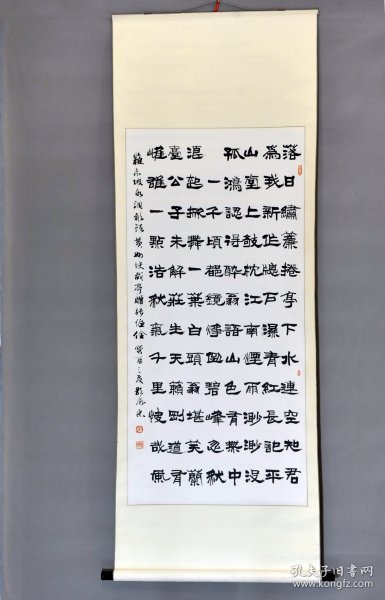 落日繡簾捲亭下水連空知君
為我新作窗戶濕青紅長記平
山堂上攲枕江南煙雨渺渺沒
孤鴻認得醉翁語山色有無中
一千頃都鏡淨倒碧峰忽然
浪起掀舞一葉白頭翁堪笑蘭
臺公子未解莊生天籟剛道有
雌雄一點浩然氣千里快哉風
蘇東坡水調歌頭黃州快哉亭贈張偓佺
孔夫子旧书网
www.kongfz.com